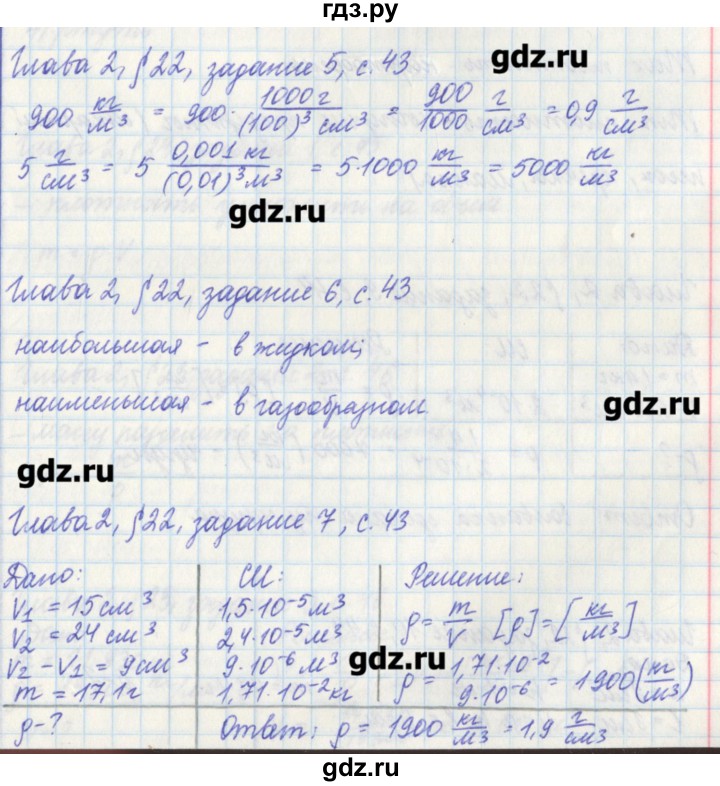 гдз.ру
Глава 2, §22, задание 5, с. 43
gdz.ru
900 кг/м³ = 900 1000 г/(100)³ см³ = 900/1000 г/см³ = 0,9 г/см³
5 г/см³ = 5 0,001 кг/(0,01)³ м³ = 5·1000 кг/м³ = 5000 кг/м³
gdz.ru
Глава 2, §22, задание 6, с. 43
наибольшая - в жидком;
наименьшая - в газообразном
gdz.ru
gdz.ru
Глава 2, §22, задание 7, с. 43
Дано: СИ: Решение:
V₁ = 15 см³ 1,5·10⁻⁵ м³ ρ = m/V [ρ] = [кг/м³]
V₂ = 24 см³ 2,4·10⁻⁵ м³
V₂ - V₁ = 9 см³ 9·10⁻⁶ м³ gdz.ru ρ = 1,71·10⁻²/9·10⁻⁶ = 1900 (кг/м³)
m = 17,1 г 1,71·10⁻² кг
ρ - ? Ответ: ρ = 1900 кг/м³ = 1,9 г/см³
gdz.ru